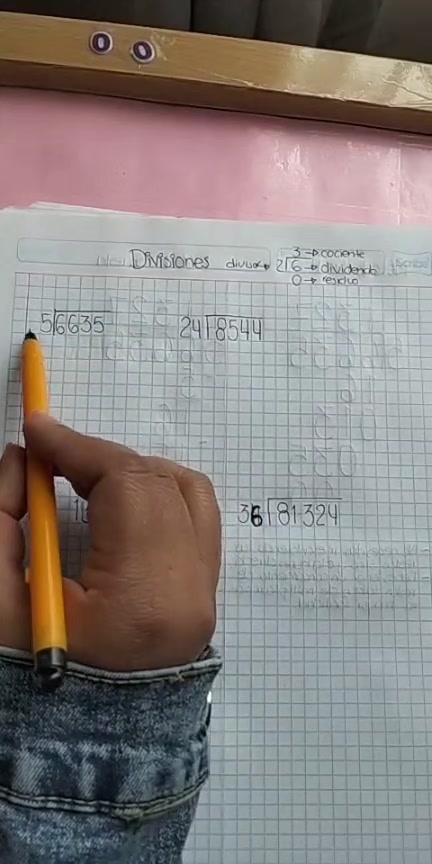 3 → cociente
Divisiones divisor → 2⟌6 → dividendo
0 → residuo
5⟌6635 24⟌8544
36⟌81324